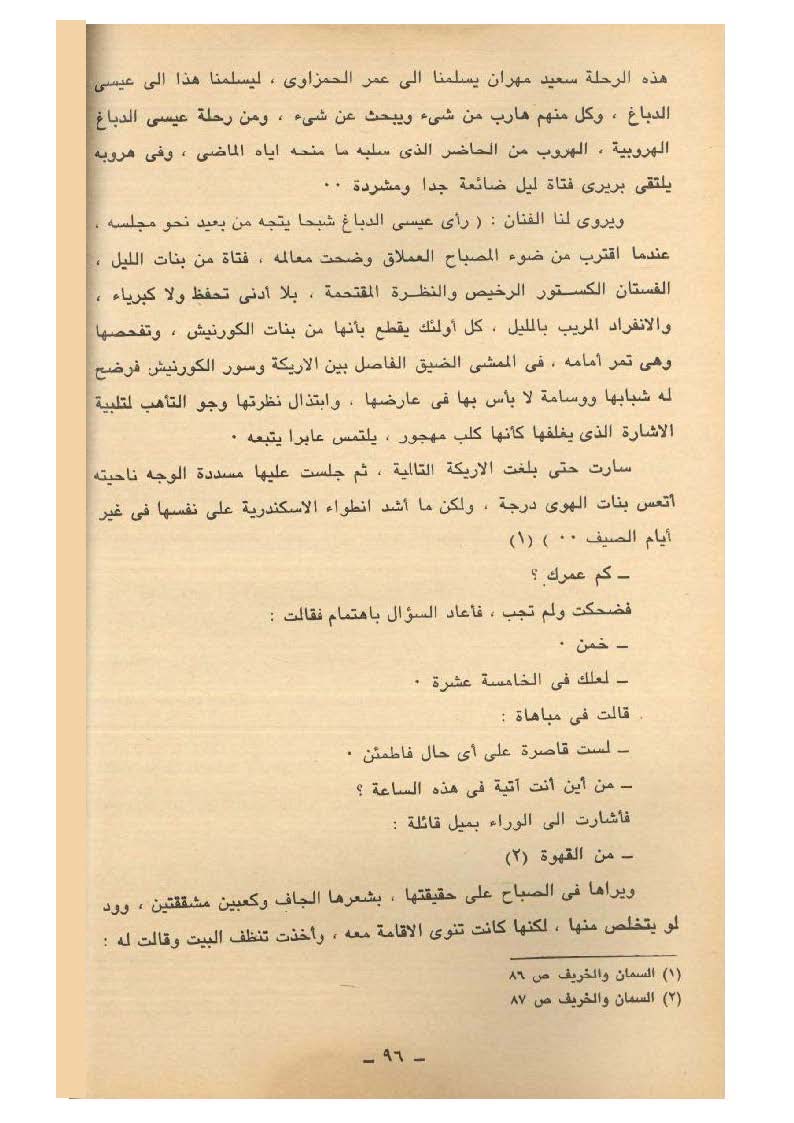 هذه الرحلة سعيد مهران يسلمنا الى عمر الحمزاوى ، ليسلمنا هذا الى عيسى
الدباغ ، وكل منهم هارب من شىء ويبحث عن شىء ، ومن رحلة عيسى الدباغ
الهروبية ، الهروب من الحاضر الذى سلبه ما منحه اياه الماضى ، وفى هروبه
يلتقى بريرى فتاة ليل ضائعة جدا ومشردة ٠٠
ويروى لنا الفنان : ( رأى عيسى الدباغ شبحا يتجه من بعيد نحو مجلسه ،
عندما اقترب من ضوء المصباح العملاق وضحت معالمه ، فتاة من بنات الليل ،
الفستان الكستور الرخيص والنظرة المقتحمة ، بلا أدنى تحفظ ولا كبرياء ،
والانفراد المريب بالليل ، كل أولئك يقطع بأنها من بنات الكورنيش ، وتفحصها
وهى تمر أمامه ، فى الممشى الضيق الفاصل بين الاريكة وسور الكورنيش فرضح
له شبابها ووسامة لا بأس بها فى عارضها ، وابتذال نظرتها وجو التأهب لتلبية
الاشارة الذى يغلفها كأنها كلب مهجور ، يلتمس عابرا يتبعه ٠
سارت حتى بلغت الاريكة التالية ، ثم جلست عليها مسددة الوجه ناحيته
أتعس بنات الهوى درجة ، ولكن ما أشد انطواء الاسكندرية على نفسها فى غير
أيام الصيف ٠٠ ) (١)
ــ كم عمرك ؟
فضحكت ولم تجب ، فأعاد السؤال باهتمام فقالت :
ــ خمن ٠
ــ لعلك فى الخامسة عشرة ٠
قالت فى مباهاة :
ــ لست قاصرة على أى حال فاطمئن ٠
ــ من أين أنت آتية فى هذه الساعة ؟
فأشارت الى الوراء بميل قائلة :
ــ من القهوة (٢)
ويراها فى الصباح على حقيقتها ، بشعرها الجاف وكعبين مشققتين ، وود
لو يتخلص منها ، لكنها كانت تنوى الاقامة معه ، وأخذت تنظف البيت وقالت له :
(١) السمان والخريف ص ٨٦
(٢) السمان والخريف ص ٨٧
ــ ٩٦ ــ